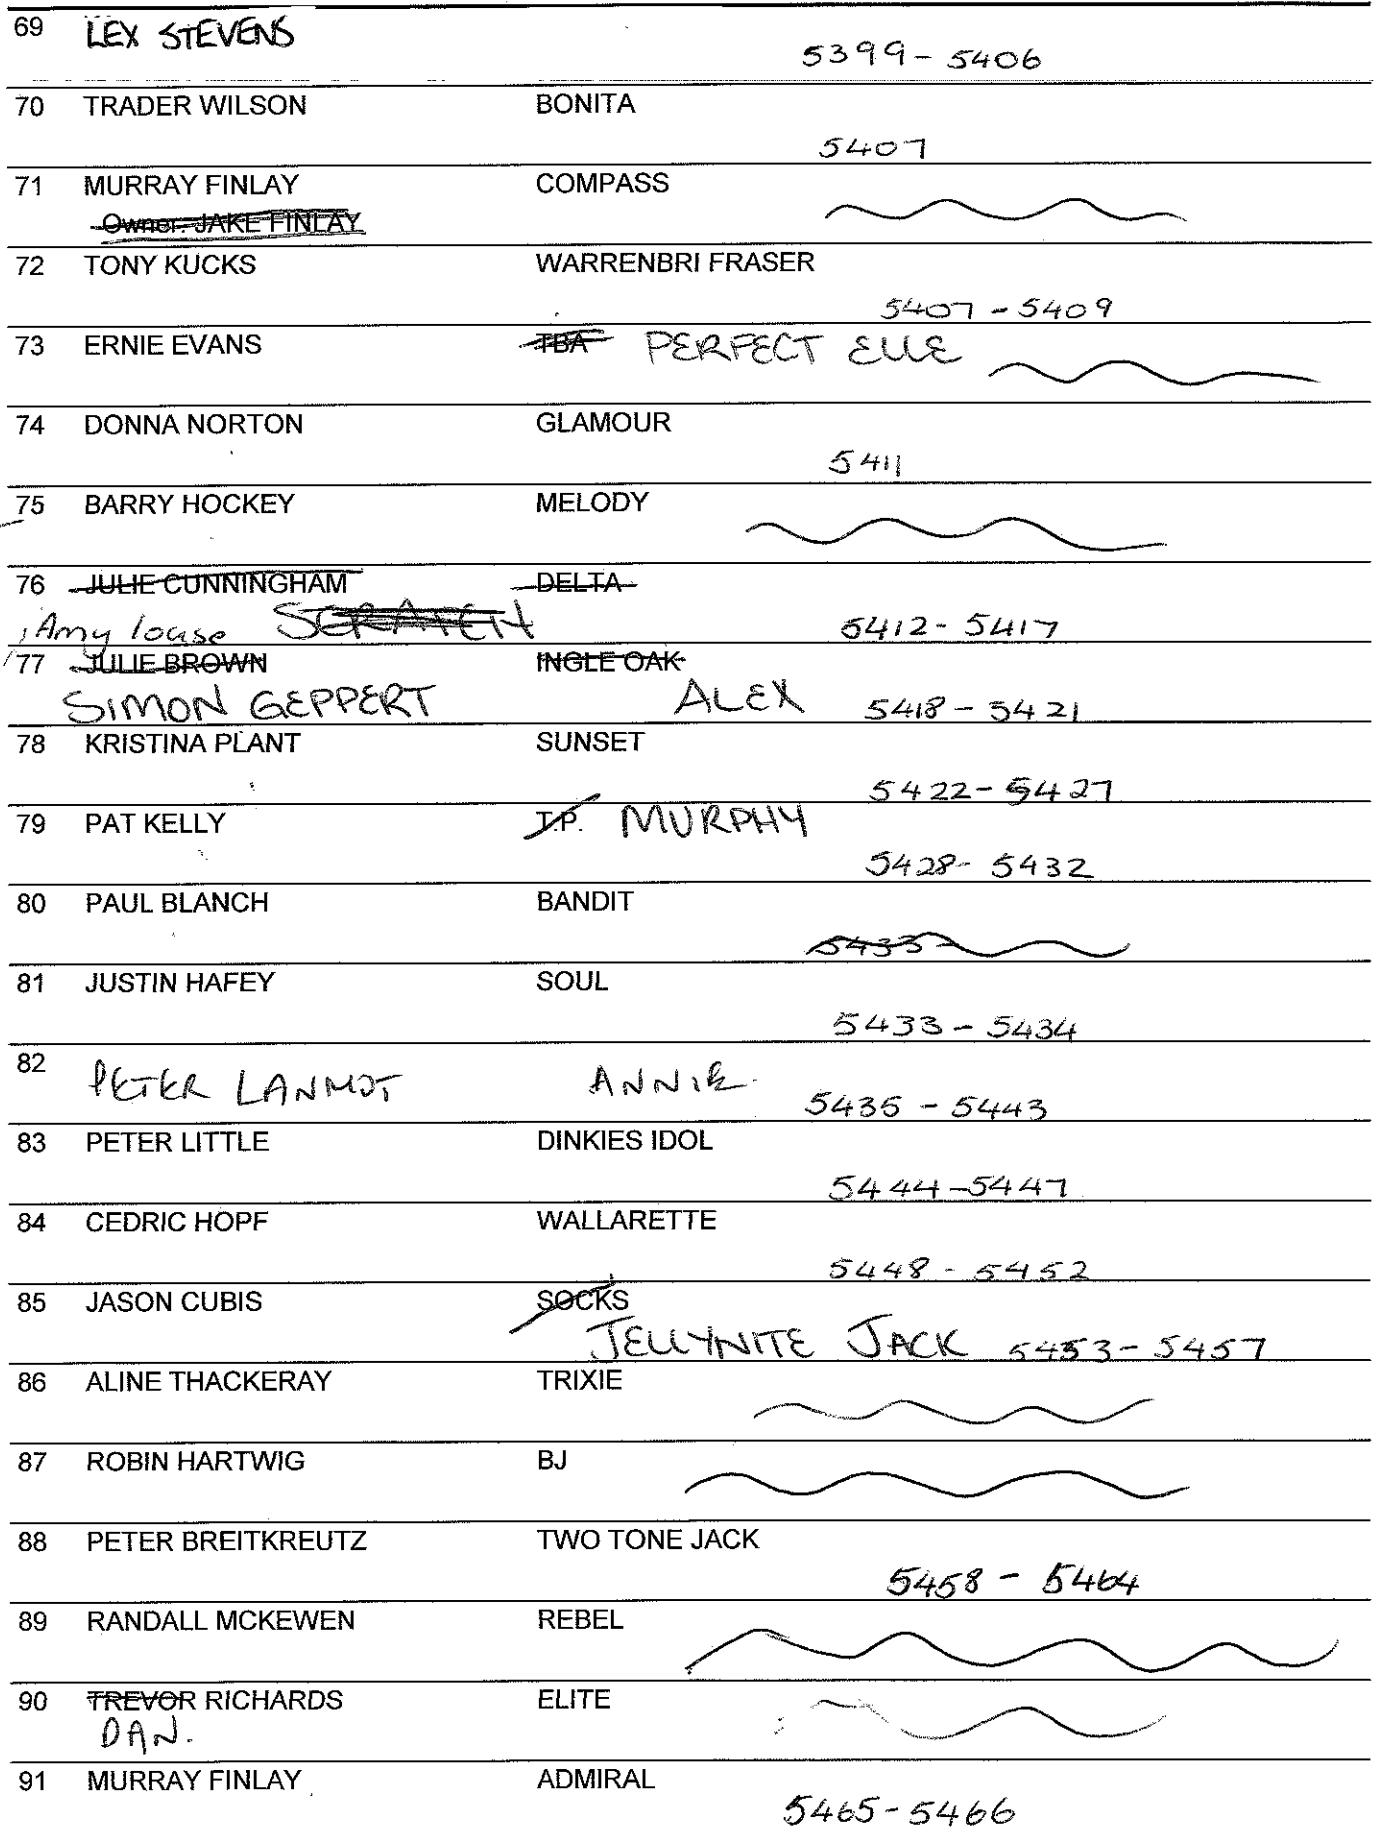 69 LEX STEVENS
5399 - 5406
70 TRADER WILSON BONITA
5407
71 MURRAY FINLAY COMPASS
Owner: JAKE FINLAY
72 TONY KUCKS WARRENBRI FRASER
5407 - 5409
73 ERNIE EVANS TBA PERFECT ELLE
74 DONNA NORTON GLAMOUR
5411
75 BARRY HOCKEY MELODY
76 JULIE CUNNINGHAM DELTA
Amy louse SCRATCH 5412 - 5417
77 JULIE BROWN INGLE OAK
SIMON GEPPERT ALEX 5418 - 5421
78 KRISTINA PLANT SUNSET
5422 - 5427
79 PAT KELLY T.P. MURPHY
5428 - 5432
80 PAUL BLANCH BANDIT
5433 -
81 JUSTIN HAFEY SOUL
5433 - 5434
82 PETER LANMOT ANNIE
5435 - 5443
83 PETER LITTLE DINKIES IDOL
5444 - 5447
84 CEDRIC HOPF WALLARETTE
5448 - 5452
85 JASON CUBIS SOCKS
JELLYNITE JACK 5453 - 5457
86 ALINE THACKERAY TRIXIE
87 ROBIN HARTWIG BJ
88 PETER BREITKREUTZ TWO TONE JACK
5458 - 5464
89 RANDALL MCKEWEN REBEL
90 TREVOR RICHARDS ELITE
DAN.
91 MURRAY FINLAY ADMIRAL
5465 - 5466